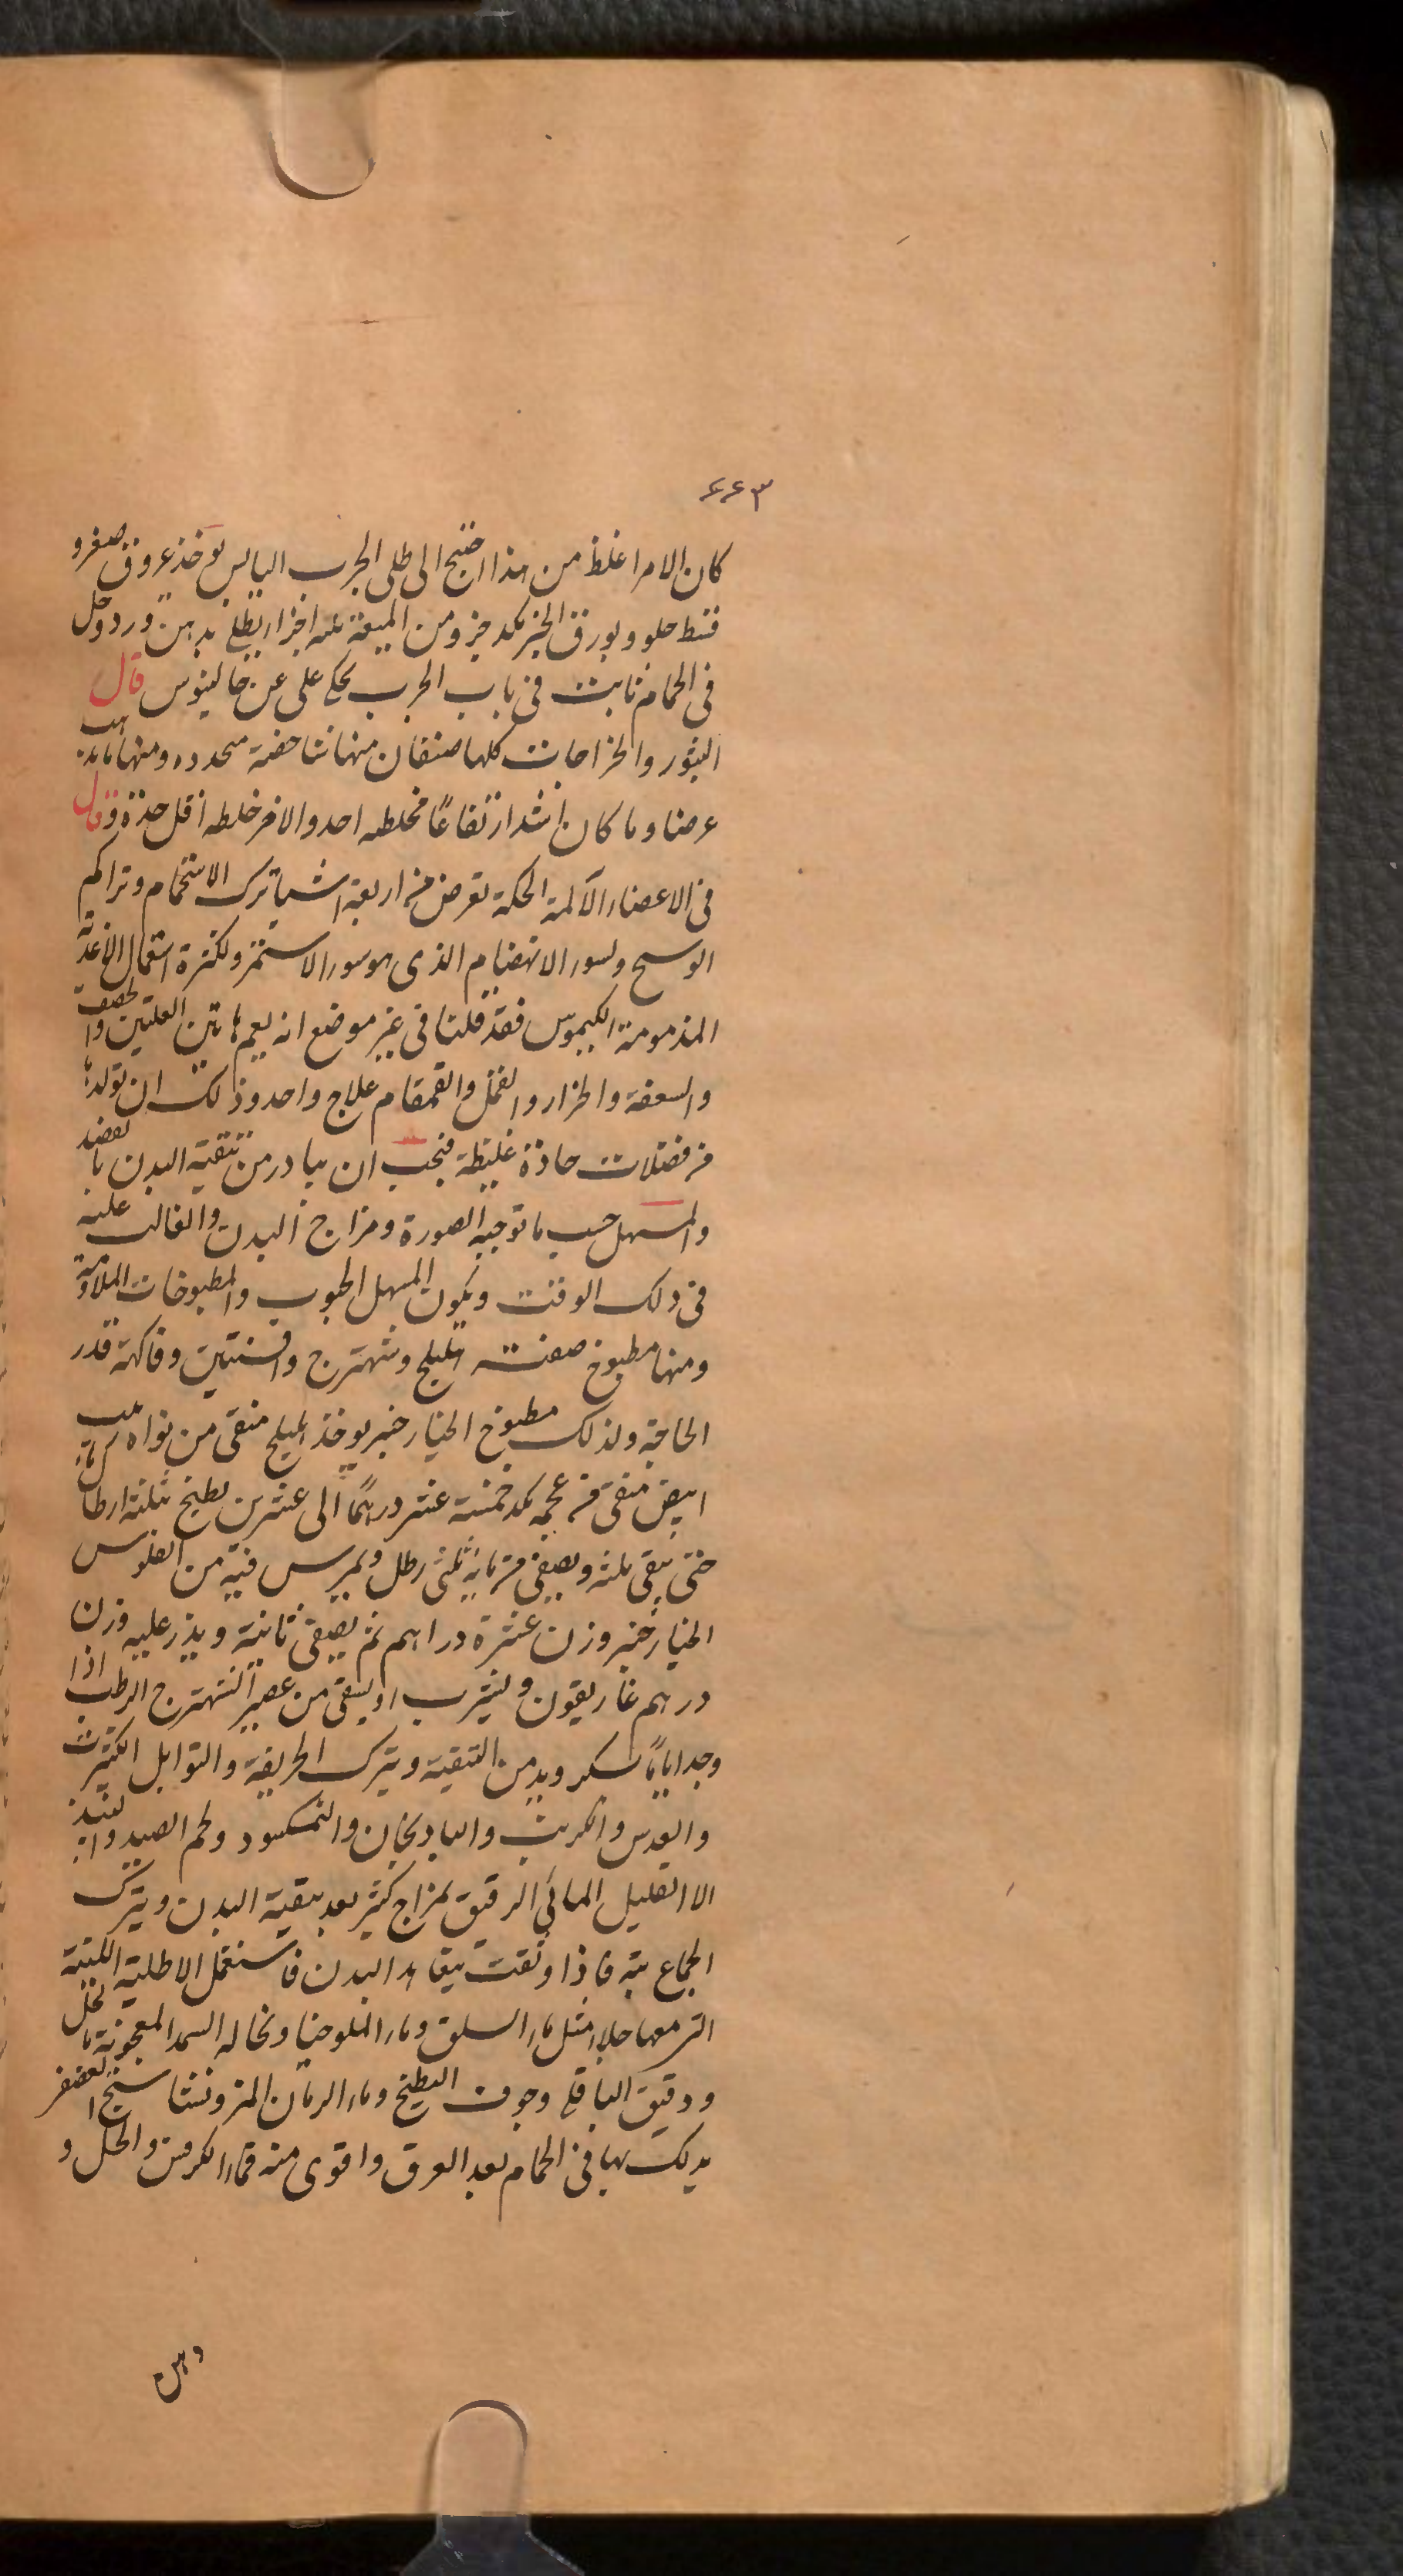 ۶۶۳
كان الامر اغلظ من هذا احتيج الى طلى الجرب اليابس يوخذ عروق صفر و
قسط حلو وبورق الخبز بكد جزو من الميعة ثلثه اجزا يطلى بدهن ورد وخل
فى الحمام ثابت فى باب الجرب يحكى على عن جالينوس قال
البثور والخراجات كلها صنفان منها شاخصة محدده ومنها ذاهبة
عرضا وما كان اشد ارتفاعًا فخلطه احد والاخر خلطه اقل حدة وقال
فى الاعضاء الآلمة الحكة تعرض من اربعة اشيا ترك الاستحمام وتراكم
الوسخ ولسوء الانهضام الذى هو سوء الاستمرء ولكثرة استعمال الاغذية
المذمومة الكيموس فقد قلنا فى غير موضع انه يعم هاتين العلتين والحصف
والسعفة والحزاز والقمل والقمقام علاج واحد وذلك ان تولدها
من فضلات حادة غليظة فيجب ان يبادر من تنقية البدن بالفصد
والمسهل حسب ما توجبه الصورة ومزاج البدن والغالب عليه
فى ذلك الوقت ويكون المسهل الحبوب والمطبوخات الملاومة
ومنها مطبوخ صفته اهليلج وشهترج وافسنتين وفاكهة قدر
الحاجة وكذلك مطبوخ الخيار خنبر يوخذ هليلج منقى من نواه زبيب
ابيض منقى من عجمه بكد خمسة عشر درهمًا الى عشرين يطبخ بثلثة ارطال
حتى يبقى ثلثه ويصفى من مايه ثلثى رطل ويمرس فيه من الفلوس
الخيار خنبر وزن عشرة دراهم ثم يصفى ثانية ويذر عليه وزن
درهم غاريقون ويشرب او يسقى من عصير الشهترج الرطب اذا
وجد اياماً بسكر ويدمن التنقية ويترك الحريفة والتوابل الكثيرة
والعدس والكرنب والبادنجان والنمكسود ولحم الصيد والنبيذ
الا القليل المائى الرقيق بمزاج كثير بعد تنقية البدن ويترك
الجماع بتة فاذا وثقت بنقاء البدن فاستعمل الاطلية اللينة
التى معها جلاء مثل ماء السلق وماء الملوخيا ونخاله السمد المعجونة بالخل
ودقيق الباقلى وجوف البطيخ وماء الرمان المز ونشاستج العصفر
يدلك بها فى الحمام بعد العرق واقوى منه فماء الكرفس والخل و
دهن